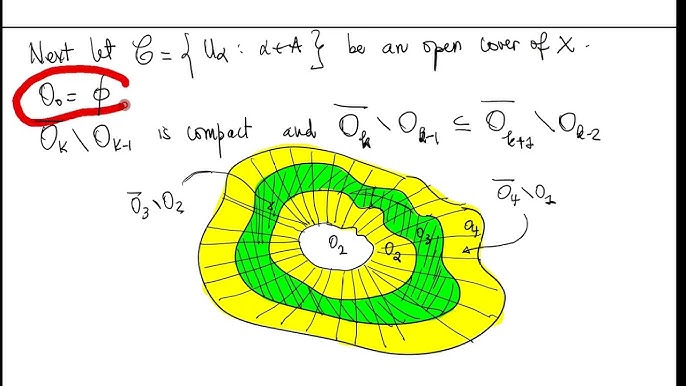 Next let 𝒞 = { Uα : α ∈ A } be an open cover of X.
O₀ = ϕ
O̅ₖ \ Oₖ₋₁ is compact and O̅ₖ \ Oₖ₋₁ ⊆ O̅ₖ₊₁ \ Oₖ₋₂
O̅₃\O₃
O̅₄\O₂
O₄
O₃
O₂
O₂